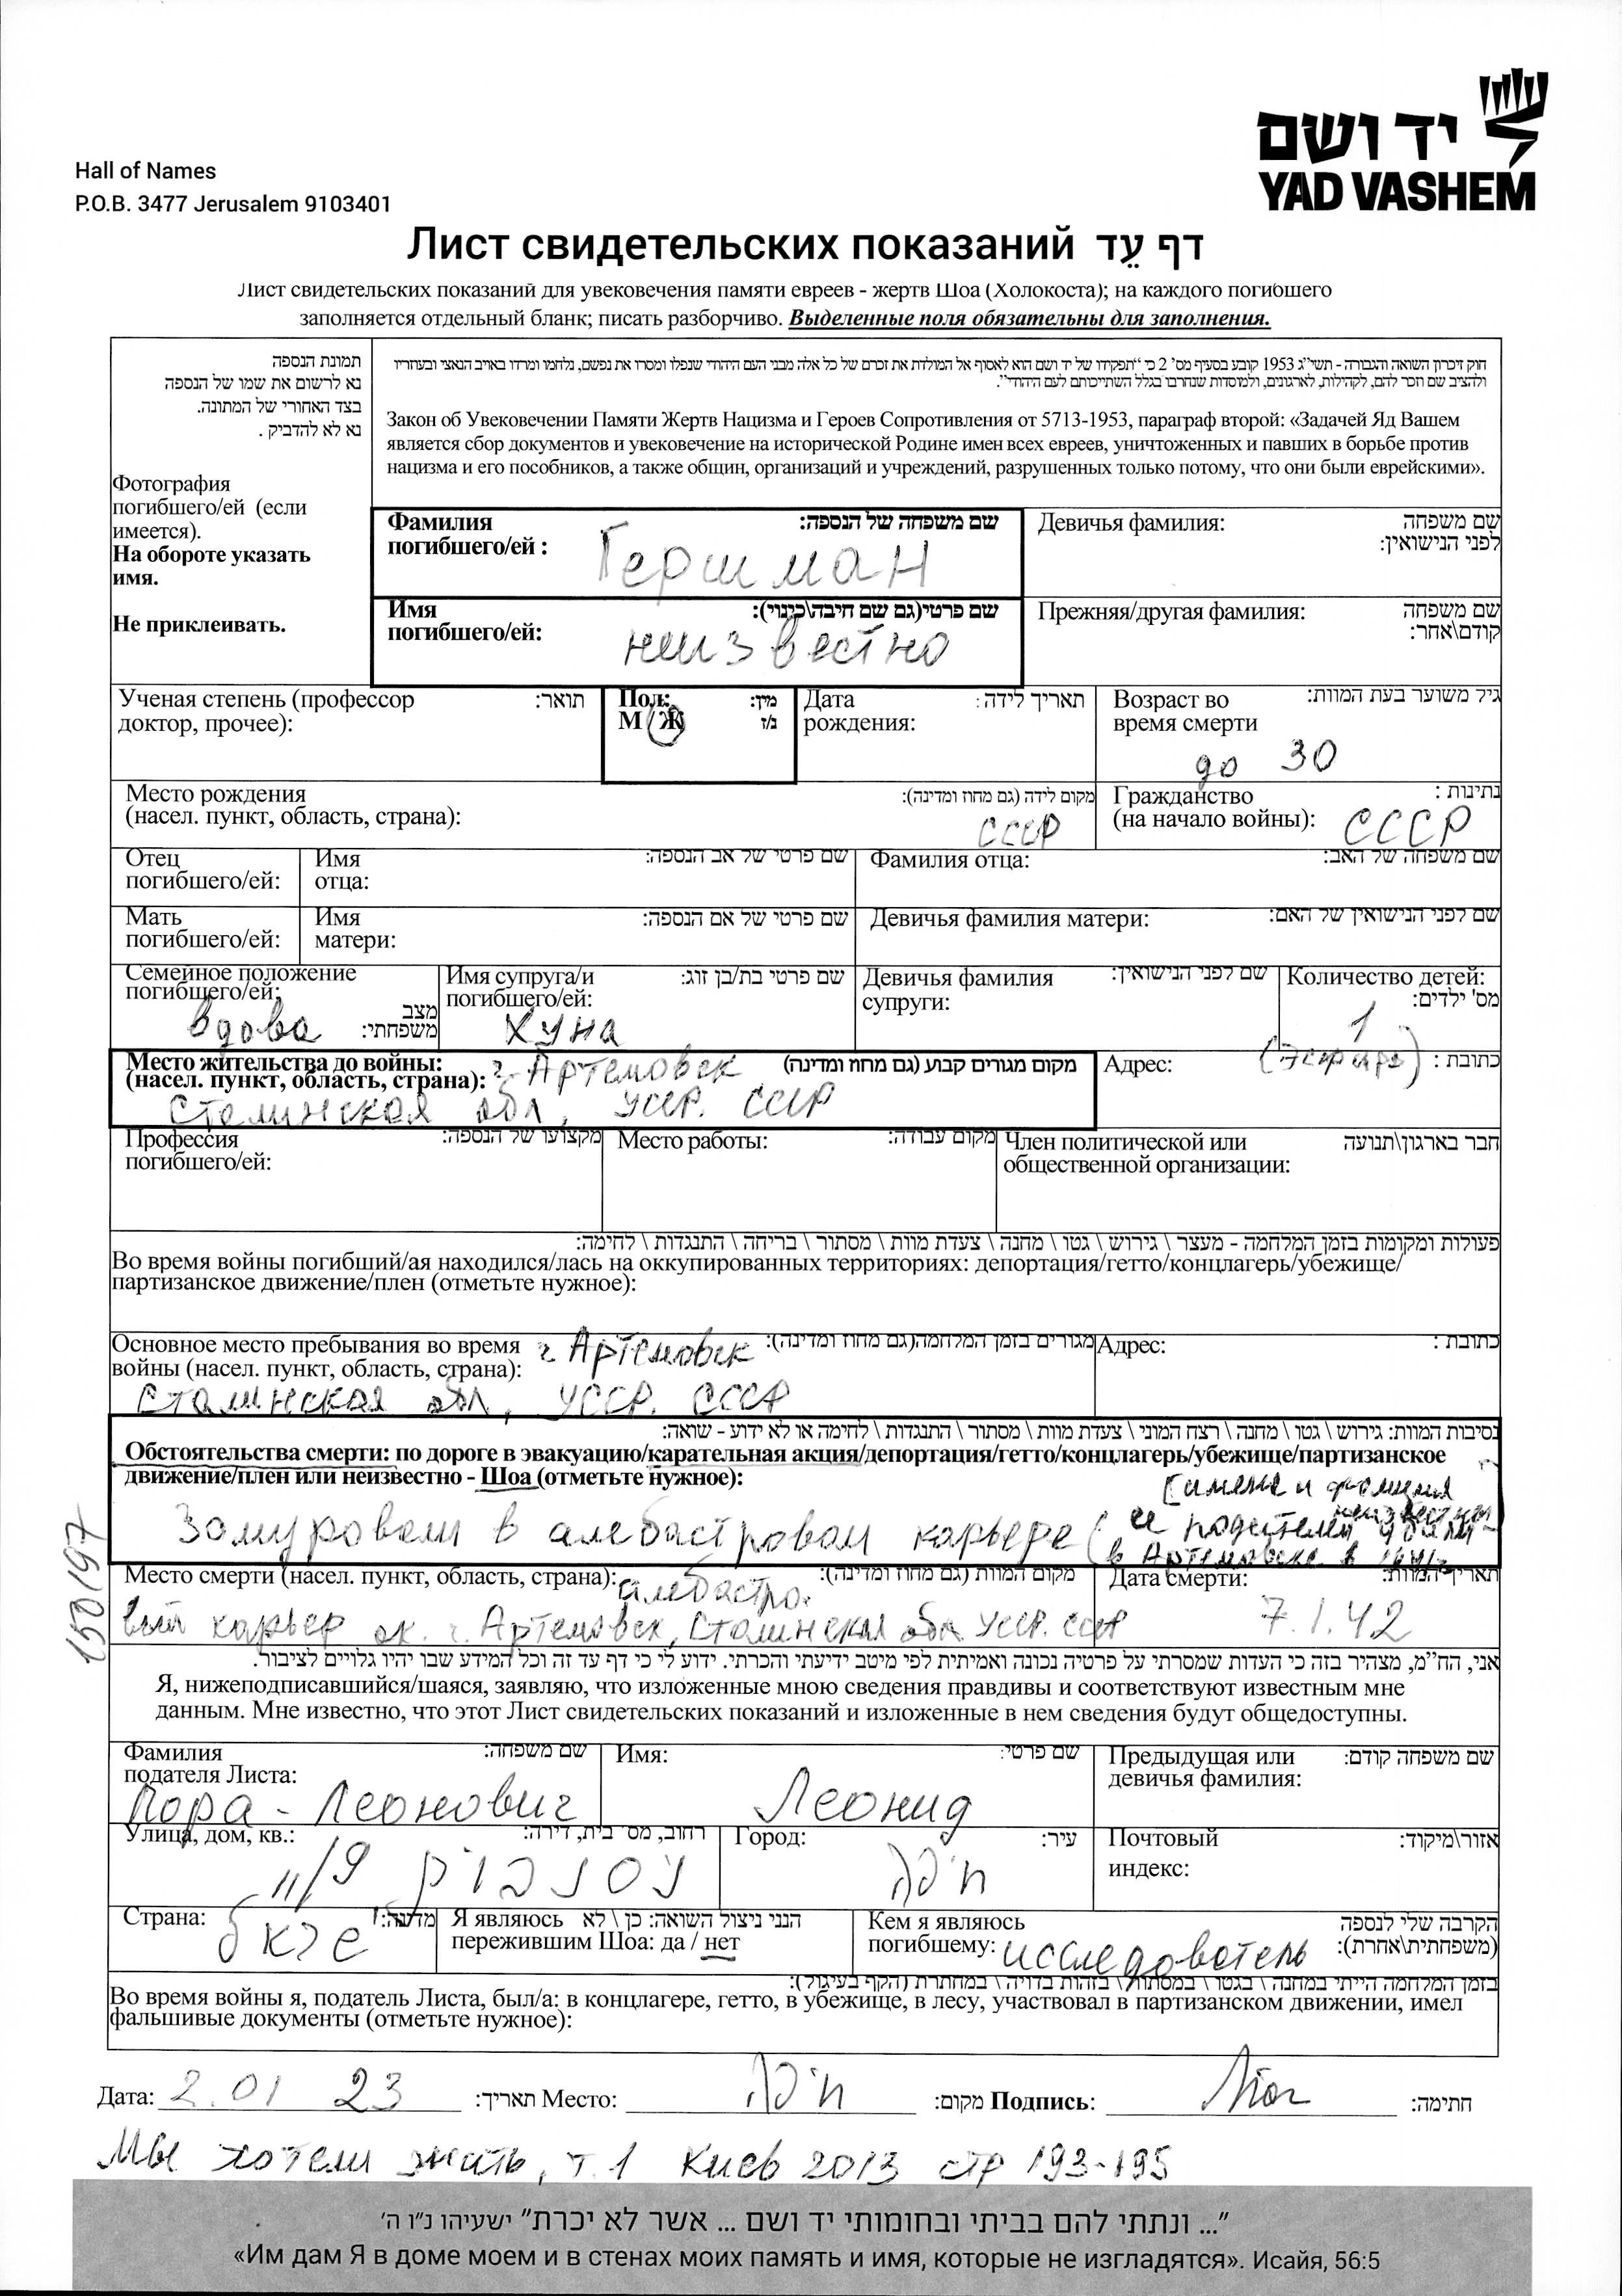 יד ושם
YAD VASHEM
Hall of Names
P.O.B. 3477 Jerusalem 9103401
Лист свидетельских показаний דף עֵד
Лист свидетельских показаний для увековечения памяти евреев - жертв Шоа (Холокоста); на каждого погибшего
заполняется отдельный бланк; писать разборчиво. Выделенные поля обязательны для заполнения.
תמונת הנספה
נא לרשום את שמו של הנספה
בצד האחורי של המתונה.
נא לא להדביק .
Фотография
погибшего/ей (если
имеется).
На обороте указать
имя.
Не приклеивать.
חוק זיכרון השואה והגבורה - תשי"ג 1953 קובע בסעיף מס' 2 כי "תפקידו של יד ושם הוא לאסוף אל המולדת את זכרם של כל אלה מבני העם היהודי שנפלו ומסרו את נפשם, נלחמו ומרדו באויב הנאצי ובעוזריו
ולהציב שם וזכר להם, לקהילות, לארגונים, ולמוסדות שנחרבו בגלל השתייכותם לעם היהודי".
Закон об Увековечении Памяти Жертв Нацизма и Героев Сопротивления от 5713-1953, параграф второй: «Задачей Яд Вашем
является сбор документов и увековечение на исторической Родине имен всех евреев, уничтоженных и павших в борьбе против
нацизма и его пособников, а также общин, организаций и учреждений, разрушенных только потому, что они были еврейскими».
Фамилия שם משפחה של הנספה:
погибшего/ей : Гершман
Девичья фамилия: שם משפחה
לפני הנישואין:
Имя שם פרטי(גם שם חיבה\כינוי):
погибшего/ей: неизвестно
Прежняя/другая фамилия: שם משפחה
קודם\אחר:
Ученая степень (профессор תואר:
доктор, прочее):
Пол: מין:
М / Ж ז/נ
Дата תאריך לידה:
рождения:
Возраст во גיל משוער בעת המוות:
время смерти
до 30
Место рождения מקום לידה (גם מחוז ומדינה):
(насел. пункт, область, страна): СССР
Гражданство נתינות :
(на начало войны): СССР
Отец
погибшего/ей:
Имя שם פרטי של אב הנספה:
отца:
Фамилия отца: שם משפחה של האב:
Мать
погибшего/ей:
Имя שם פרטי של אם הנספה:
матери:
Девичья фамилия матери: שם לפני הנישואין של האם:
Семейное положение
погибшего/ей: מצב
вдова משפחתי:
Имя супруга/и שם פרטי בת/בן זוג:
погибшего/ей:
Хуна
Девичья фамилия שם לפני הנישואין:
супруги:
Количество детей:
מס' ילדים:
1
Место жительства до войны: מקום מגורים קבוע (גם מחוז ומדינה)
(насел. пункт, область, страна): г. Артемовск
Сталинская обл, УССР. СССР
Адрес: כתובת :
Профессия מקצועו של הנספה:
погибшего/ей:
Место работы: מקום עבודה:
Член политической или חבר בארגון\תנועה
общественной организации:
פעולות ומקומות בזמן המלחמה - מעצר \ גירוש \ גטו \ מחנה \ צעדת מוות \ מסתור \ בריחה \ התנגדות \ לחימה:
Во время войны погибший/ая находился/лась на оккупированных территориях: депортация/гетто/концлагерь/убежище/
партизанское движение/плен (отметьте нужное):
Основное место пребывания во время מגורים בזמן המלחמה(גם מחוז ומדינה):
войны (насел. пункт, область, страна): г Артемовск
Сталинская обл, УССР. СССР
Адрес: כתובת :
נסיבות המוות: גירוש \ גטו \ מחנה \ רצח המוני \ צעדת מוות \ מסתור \ התנגדות \ לחימה או לא ידוע - שואה:
Обстоятельства смерти: по дороге в эвакуацию/карательная акция/депортация/гетто/концлагерь/убежище/партизанское
движение/плен или неизвестно - Шоа (отметьте нужное):
Замуровали в алебастровом карьере (
150197
Место смерти (насел. пункт, область, страна): מקום המוות (גם מחוז ומדינה):
алебастро-
вый карьер ок. г. Артемовск, Сталинская обл УССР. СССР
Дата смерти: תאריך המוות:
7.1.42
אני, הח"מ, מצהיר בזה כי העדות שמסרתי על פרטיה נכונה ואמיתית לפי מיטב ידיעתי והכרתי. ידוע לי כי דף עד זה וכל המידע שבו יהיו גלויים לציבור.
Я, нижеподписавшийся/шаяся, заявляю, что изложенные мною сведения правдивы и соответствуют известным мне
данным. Мне известно, что этот Лист свидетельских показаний и изложенные в нем сведения будут общедоступны.
Фамилия שם משפחה:
подателя Листа:
Лора-Леонович
Имя: שם פרטי:
Леонид
Предыдущая или שם משפחה קודם:
девичья фамилия:
Улица, дом, кв.: רחוב, מס' בית, דירה:
Город: עיר:
חיפה
Почтовый אזור\מיקוד:
индекс:
Страна: מדינה:
Я являюсь הנני ניצול השואה: כן \ לא
пережившим Шоа: да / нет
Кем я являюсь הקרבה שלי לנספה
погибшему: исследователь (משפחתית\אחרת):
בזמן המלחמה הייתי במחנה \ בגטו \ במסתור \ בזהות בדויה \ במחתרת (הקף בעיגול):
Во время войны я, податель Листа, был/а: в концлагере, гетто, в убежище, в лесу, участвовал в партизанском движении, имел
фальшивые документы (отметьте нужное):
Дата: 2.01 23 תאריך: Место: חיפה מקום: Подпись: חתימה:
Мы хотели знать, т.1 Киев 2013 стр 193-195
"... ונתתי להם בביתי ובחומותי יד ושם ... אשר לא יכרת" ישעיהו נ"ו ה'
«Им дам Я в доме моем и в стенах моих память и имя, которые не изгладятся». Исайя, 56:5